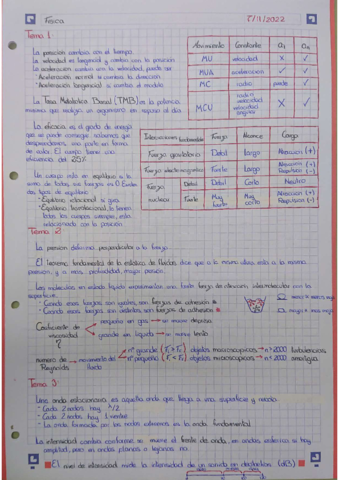 Física 8/11/2022
Tema 1
La posición cambia con el tiempo.
La velocidad es tangencial y cambia con la posición
La aceleración cambia con la velocidad, puede ser
· Aceleración normal si cambia la dirección
· Aceleración tangencial si cambia el módulo
Movimiento Constante a₁ aₙ
MU velocidad X ✓
MUA aceleración ✓ ✓
MC radio ✓
MCU radio velocidad velocidad angular X ✓
La Tasa Metabólica Basal (TMB) es la potencia
mínima que realiza un organismo en reposo al día
La eficacia es el grado de energía
que se puede conseguir sabiendo que
desprendemos una parte en forma
de calor. El cuerpo tiene una
eficiencia del 25%
Interacciones fundamentales Fuerza Alcance Carga
Fuerza gravitatoria Débil Largo Atracción (+)
Fuerza electromagnética Fuerte Largo Atracción (+) Repulsión (-)
Fuerza nuclear Débil Débil Corto Neutro
Fuerte Muy fuerte Muy corto Atracción (+) Repulsión (-)
Un cuerpo está en equilibrio si la
suma de todas sus fuerzas es 0. Existen
dos tipos de equilibrio
· Equilibrio rotacional: si gira
· Equilibrio traslacional: lo tienen
todos los cuerpos siempre, está
relacionado con la posición
Tema 2
La presión definimos perpendicular a la fuerza
El teorema fundamental de la estática de fluidos dice que a la misma altura está a la misma
presión, y a más profundidad, mayor presión.
Las moléculas en estado líquido experimentan una doble fuerza de atracción, intermoleculares con la
superficie.
· Cuando esas fuerzas son iguales, son fuerzas de cohesión
· Cuando esas fuerzas son distintas son fuerzas de adhesión
Coeficiente de viscosidad η
pequeña en gas → se mueve deprisa
grande en líquido → se mueve lento
número de Reynolds → movimiento del fluido
nº grande (F₁ > F₂) objetos macroscópicos → n > 2000 turbulencias
nº pequeño (F₁ < F₂) objetos microscópicos → n < 2000 amalgia
Tema 3
Una onda estacionaria es aquella onda que llega a una superficie y rebota
· Cada 2 nodos hay λ/2
· Cada 2 nodos hay 1 vientre
· La onda formada por los nodos extremos es la onda fundamental
La intensidad cambia conforme se mueve el frente de onda, en ondas esféricas si hay
amplitud, pero en ondas planas o lejanas no.
El nivel de intensidad mide la intensidad de un sonido en decibelios (dB)